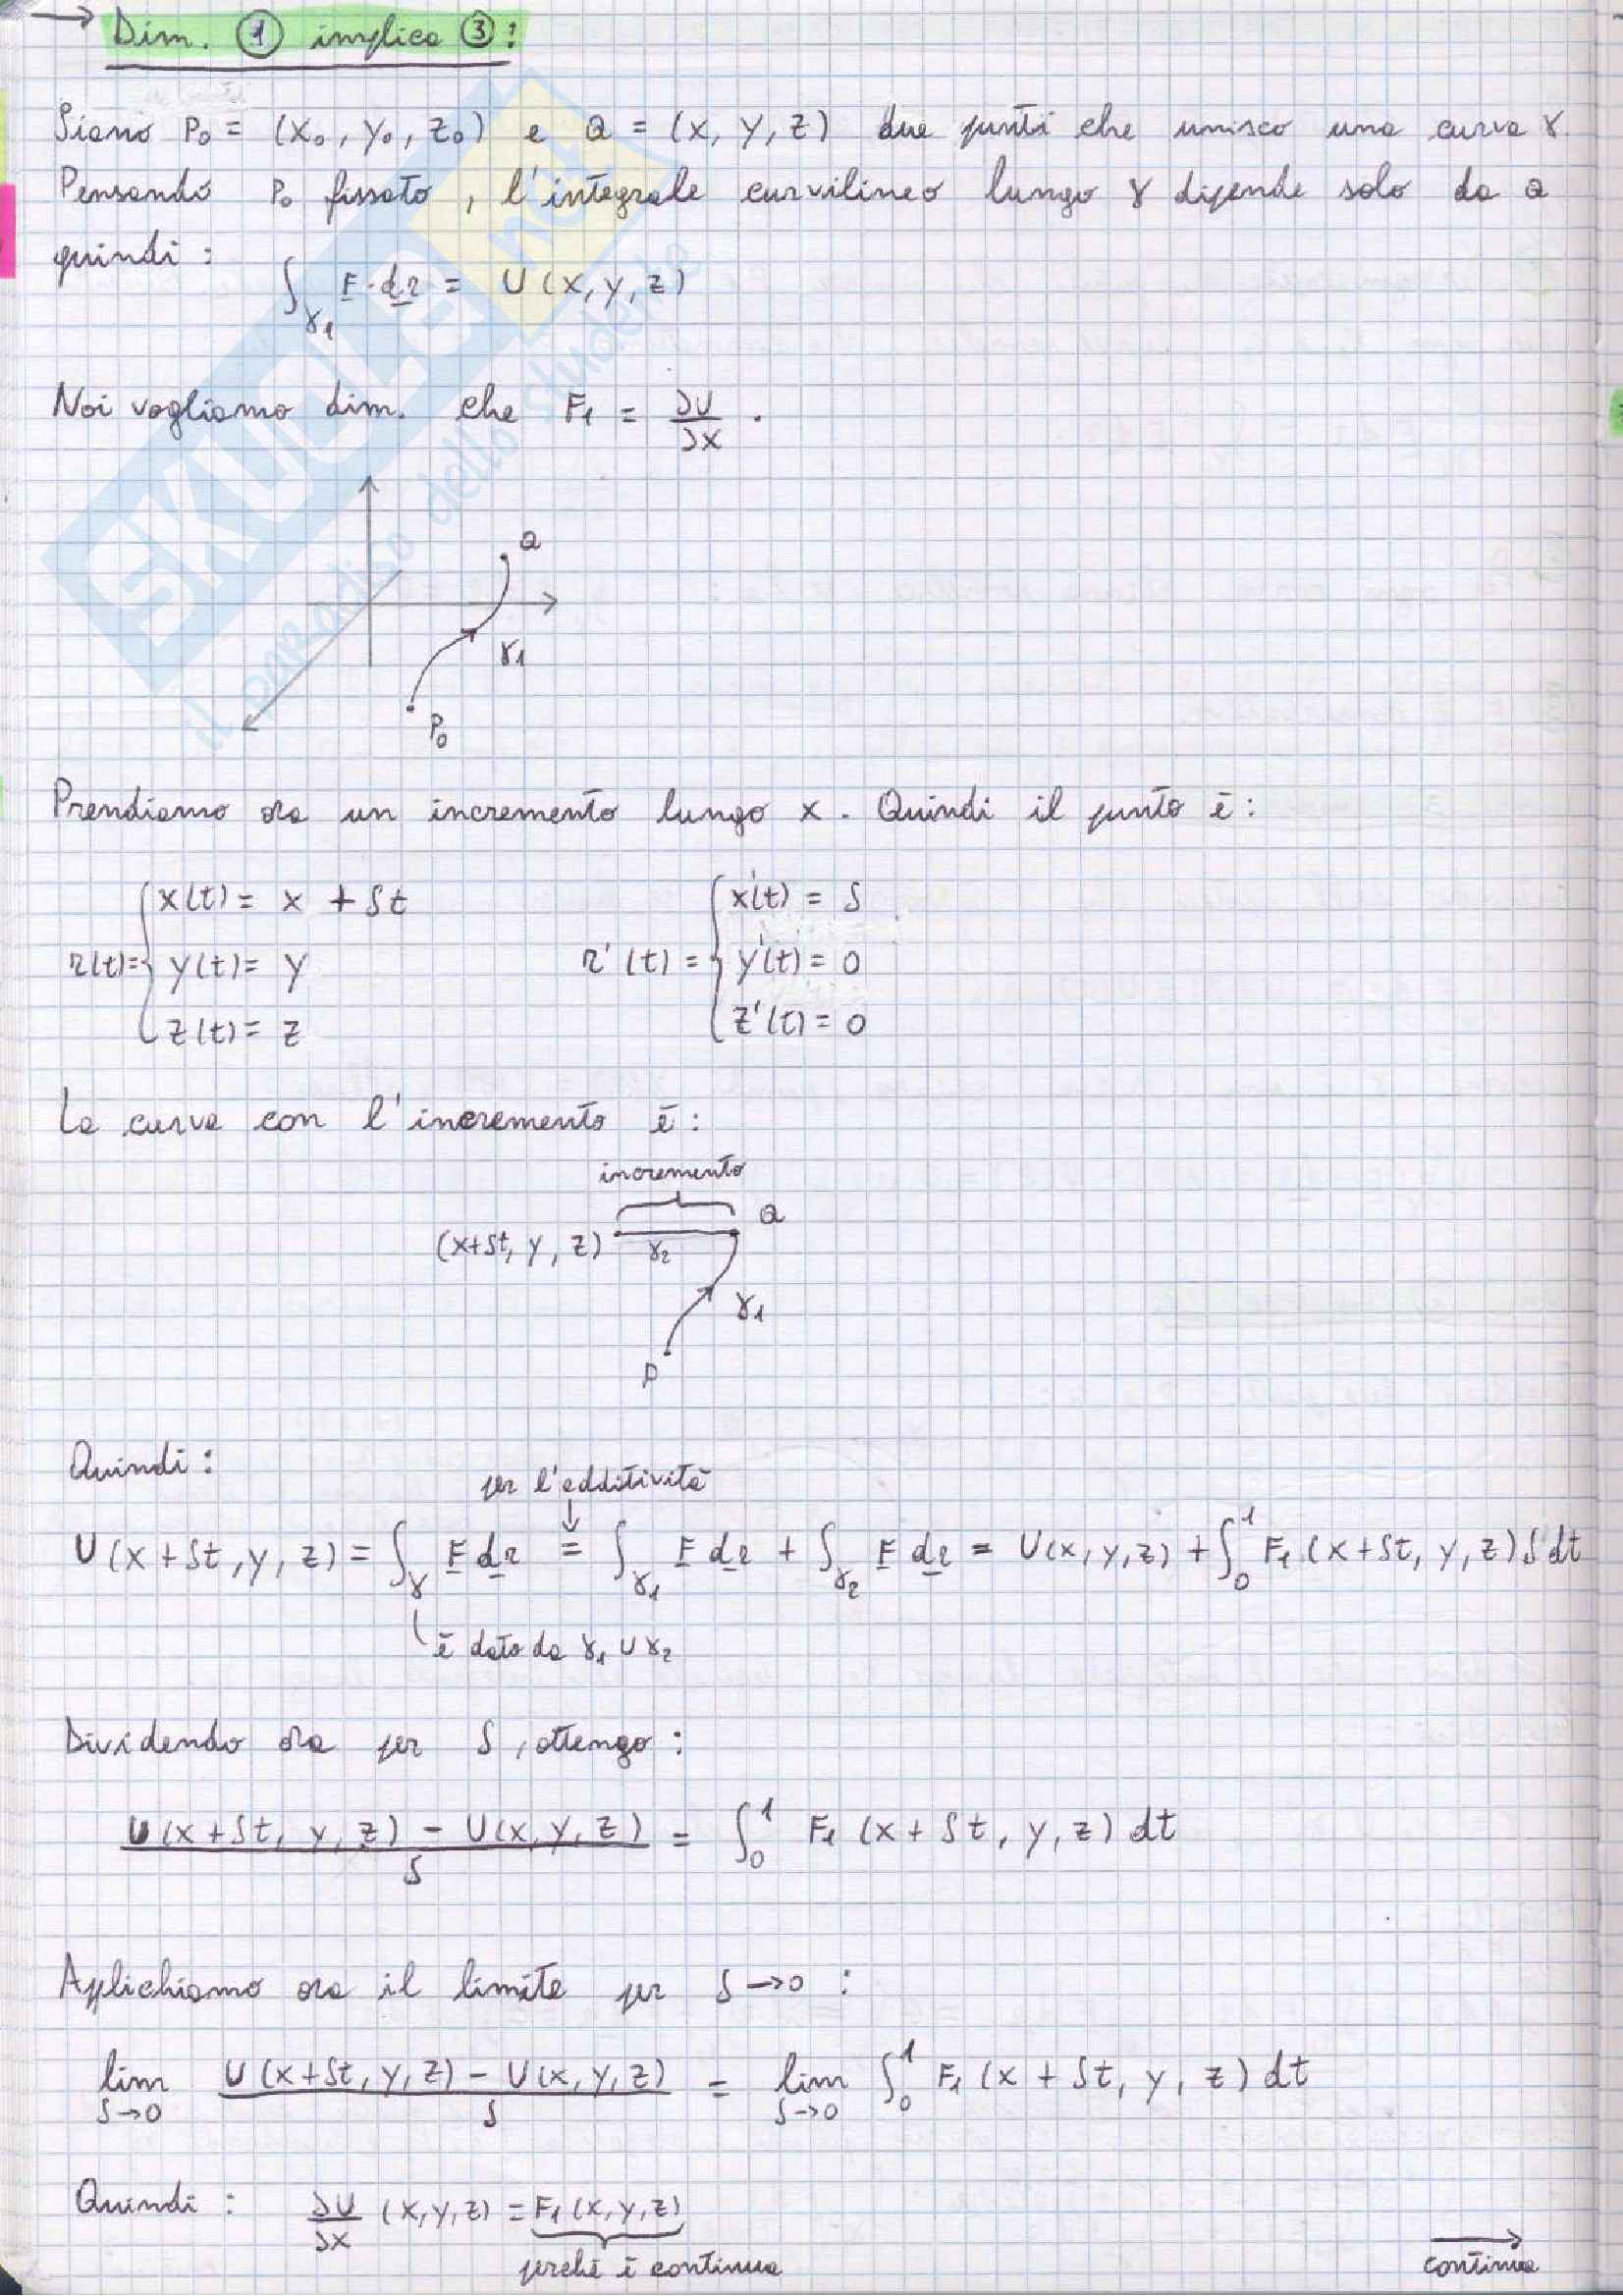 → Dim. ① implica ③:
Siano P₀ = (x₀, y₀, z₀) e Q = (x, y, z) due punti che unisco una curva γ.
Pensando P₀ fissato, l'integrale curvilineo lungo γ dipende solo da Q
quindi: ∫_γ₁ F · dr = U(x, y, z)
Noi vogliamo dim. che F₁ = ∂U/∂x .
Q
γ₁
P₀
Prendiamo ora un incremento lungo x. Quindi il punto è:
r(t) = { x(t) = x + δt    r'(t) = { x'(t) = δ
y(t) = y    y'(t) = 0
z(t) = z    z'(t) = 0
La curva con l'incremento è:
incremento
Q
(x+δt, y, z)  γ₂
γ₁
P
Quindi:
per l'additività
↓
U(x + δt, y, z) = ∫_γ F dr = ∫_γ₁ F dr + ∫_γ₂ F dr = U(x, y, z) + ∫₀¹ F₁(x+δt, y, z) δ dt
è dato da γ₁ ∪ γ₂
Dividendo ora per δ, ottengo:
(U(x+δt, y, z) − U(x, y, z))/δ = ∫₀¹ F₁(x + δt, y, z) dt
Applichiamo ora il limite per δ → 0 :
lim_{δ→0} (U(x+δt, y, z) − U(x, y, z))/δ = lim_{δ→0} ∫₀¹ F₁(x + δt, y, z) dt
Quindi : ∂U/∂x (x, y, z) = F₁(x, y, z)
perché è continua
→
continua
SKUOLA.net
il paradiso dello studente